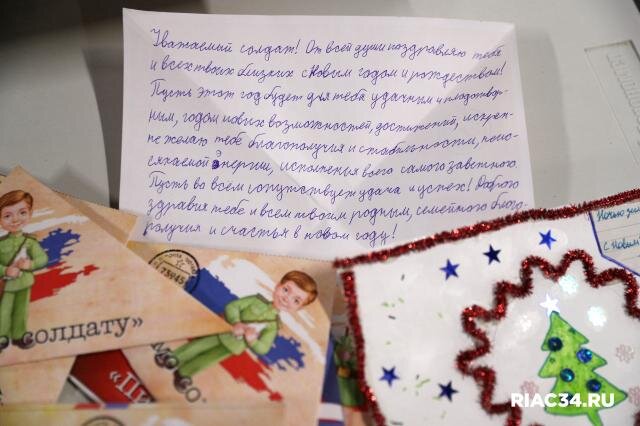 Уважаемый солдат! От всей души поздравляю тебя
и всех твоих близких с Новым годом и рождеством!
Пусть этот год будет для тебя удачным и плодотвор-
ним, годом новых возможностей, достижений, искрен-
не желаю тебе благополучия и стабильности, неис-
сякаемой энергии, исполнения всего самого заветного.
Пусть во всём сопутствует удача и успех! Доброго
здравия тебе и всем твоим родным, семейного благо-
получия и счастья в новом году!
солдату»
RIAC34.RU